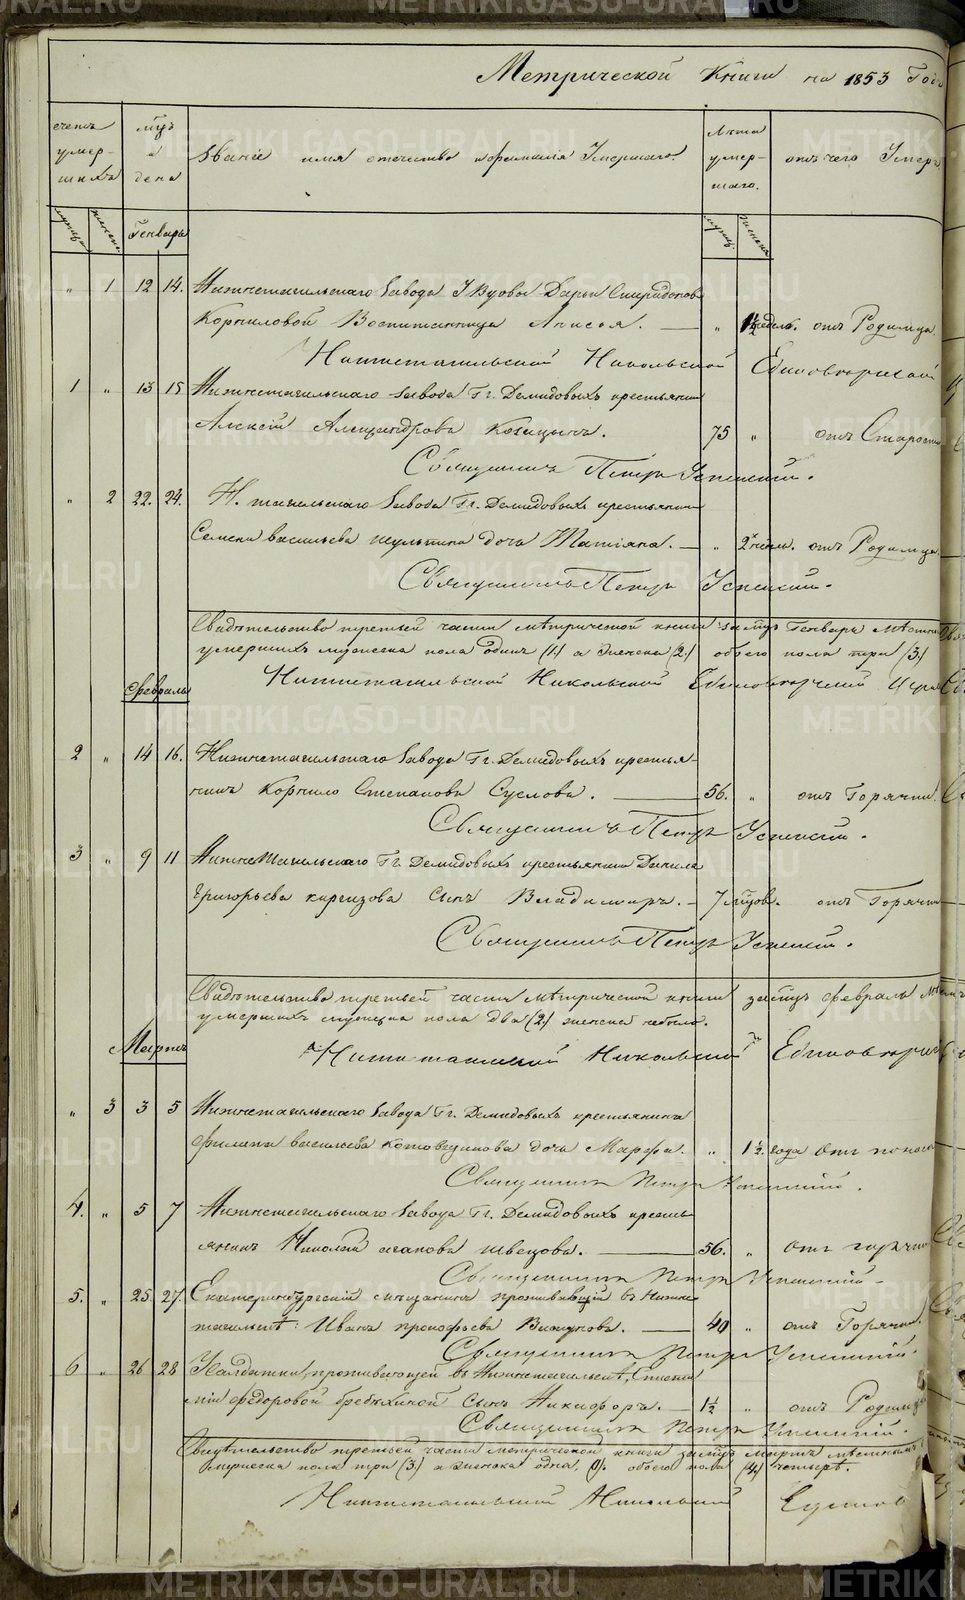 Метрической Книги на 1853 Годъ
счетъ умер- шихъ
мужска
женска
мцъ и дена
Генварь
Званіе имя отечество и фамилія Умершаго.
Лета умер- шаго.
мужск.
женска
отъ чего Умеръ
" 1 12 14. Нижнетагильскаго Завода У Вдовы Дарьи Спиридоновой
Корниловой Воспитанница Анисья. — " 1½ недель. отъ Родимца.
Нижнетагильской Никольской Единоверческой
1 " 13 15 Нижнетагильскаго завода Гг. Демидовыхъ крестьянин
Алексій Александрова Козицынъ. 75 " отъ Старости
Священникъ Петръ Успенский.
" 2 22. 24. Н. тагильскаго Завода Гг. Демидовыхъ крестьянина
Семена васильева дочь Татіяна. — " 2х недел. отъ Родимца
Священникъ Петръ Успенский.
Свидѣтельство третьей части мѣтрической книги за мцъ Генварь
умершихъ мужеска пола одинъ (1.) а женска (2.) обоего пола три (3.)
Нижнетагильской Никольской Единоверческой Церкви
Февраль
2 " 14 16. Нижнетагильскаго Завода Гг. Демидовыхъ крестья-
нинъ Корнило Степанова Суслова. — 56. " отъ Горячки.
Священникъ Петръ Успенский.
3 " 9 11 НижнеТагильскаго Гг. Демидовыхъ крестьянина Данила
Григорьева киргизова Сынъ Владимиръ. — 7 мцов. отъ Горячки
Священникъ Петръ Успенский.
Свидѣтельство третьей части Мѣтрической книги за мцъ февраль
умершихъ мужеска пола два (2.) женска небыло.
Нижнетагильской Никольской Единоверческой
Мартъ
" 3 3 5 Нижнетагильскаго Завода Гг. Демидовыхъ крестьянина
Филипа васильева дочь Марфа. " 1½. года Отъ поноса
Священникъ Петръ Успенский.
4. " 5 7 Нижнетагильскаго Завода Гг. Демидовыхъ кресть-
янинъ Николай агапова швецова. — 56. " Отъ горячки
Священникъ Петръ Успенский
5. " 25. 27. Екатеринбургскій мещанинъ проживающій въ Нижне
тагильскѣ: Иванъ прокофьева — 40 " отъ Горячки.
Священникъ Петръ Успенский.
6 " 26 28 Салдатки, проживающей въ Нижнетагильскѣ,
федоровой Сынъ Никифоръ. — 1½ " отъ Родимца
Священникъ Петръ Успенский.
Свидѣтельство третьей части метрической книги за мцъ мартъ
мужеска пола три (3.) а женска одна, (1). обоего пола (4.) четыре.
Нижнетагильской Никольской
METRIKI.GASO-URAL.RU